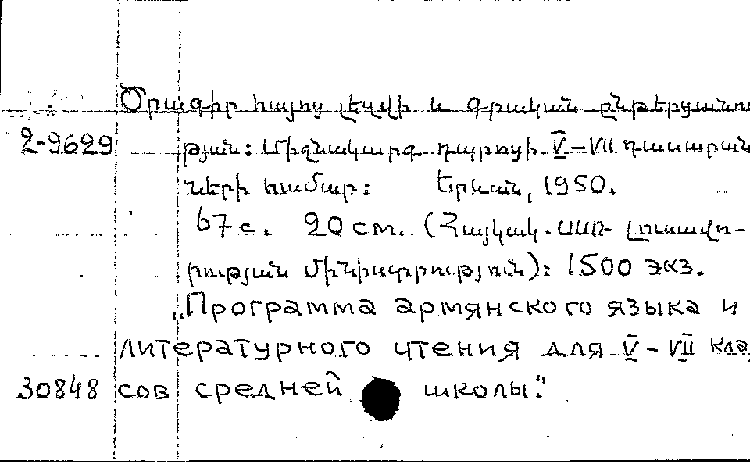 Ծրագիր հայոց լեզվի և գրական ընթերցանու
2-9629 թյան: Միջնակարգ դպրոցի V-VII դասարան
ների համար: Երևան, 1950.
67 с. 20 см. (Հայկակ. ՍՍՌ Լուսավո-
րության մինիստրություն): 1500 экз.
„Программа армянского языка и
литературного чтения для V-VII кла
30848 сов средней школы."